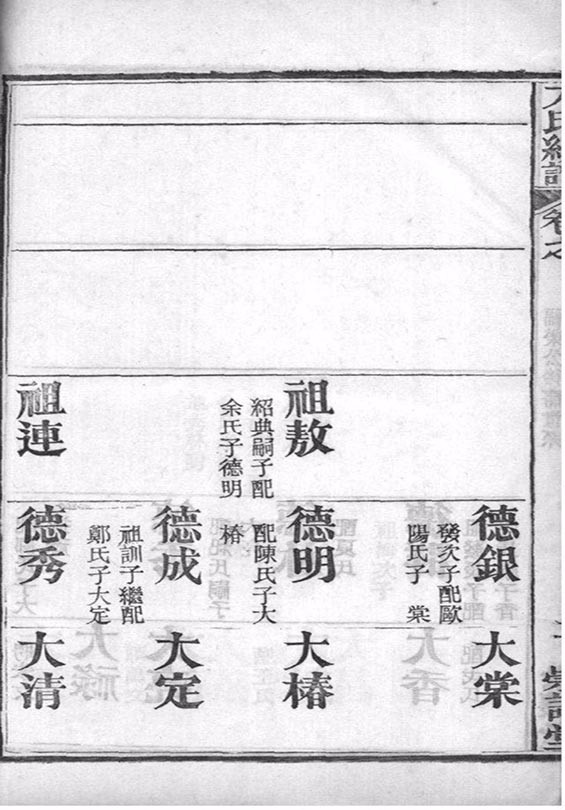 德銀
發次子配歐
陽氏子棠
大棠
祖敖
紹典嗣子配
余氏子德明
德明
配陳氏子大
椿
大椿
德成
祖訓子繼配
鄭氏子大定
大定
祖連
德秀
大清